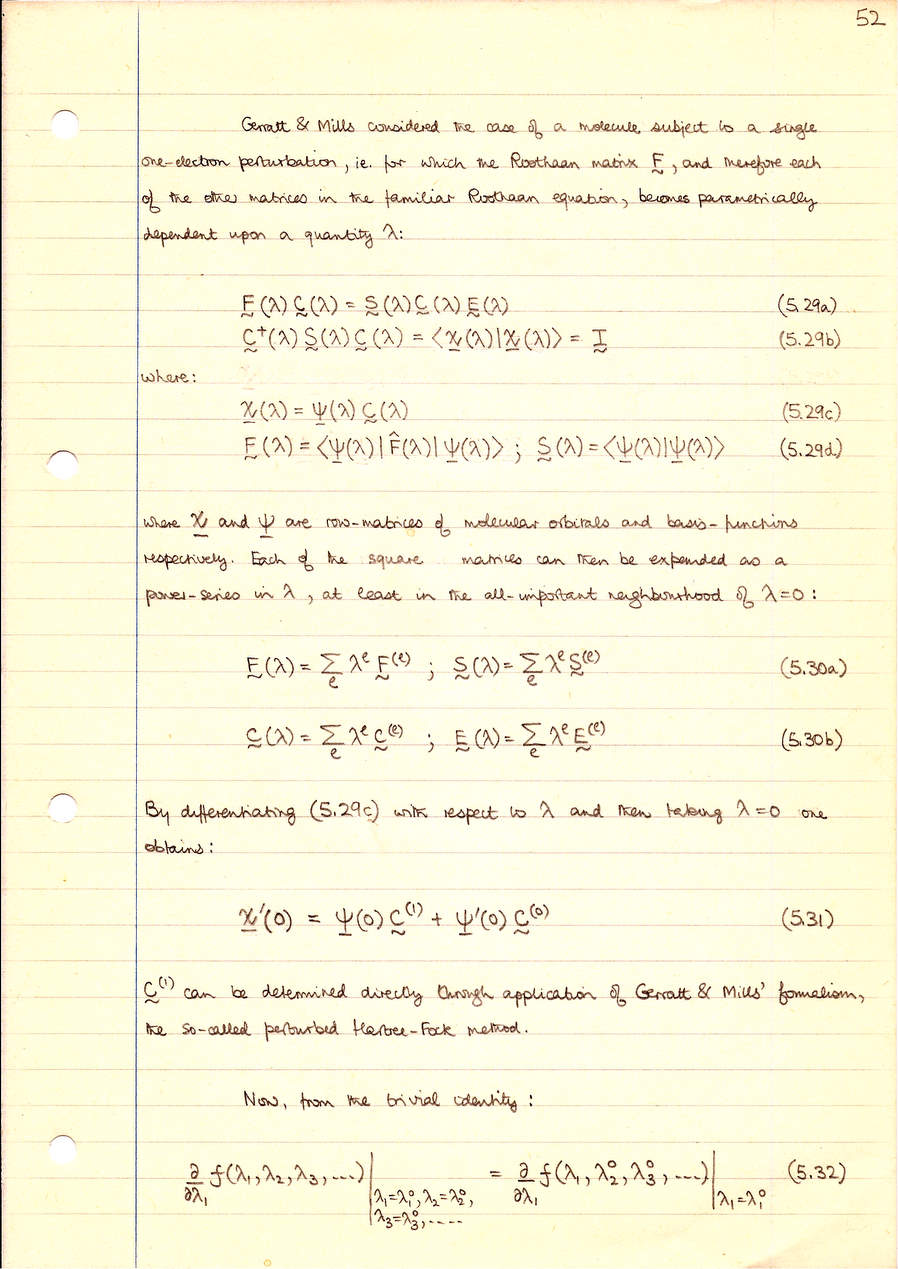 52
Gerratt & Mills considered the case of a molecule subject to a single
one-electron perturbation, ie. for which the Roothaan matrix F̰, and therefore each
of the other matrices in the familiar Roothaan equation, becomes parametrically
dependent upon a quantity λ:
F̰(λ) C̰(λ) = S̰(λ) C̰(λ) Ḛ(λ) (5.29a)
C̰⁺(λ) S̰(λ) C̰(λ) = ⟨χ̲(λ)|χ̲(λ)⟩ = Ḭ (5.29b)
where:
χ̲(λ) = ψ̲(λ) C̰(λ) (5.29c)
F̰(λ) = ⟨ψ̲(λ)|F̂(λ)|ψ̲(λ)⟩ ; S̰(λ) = ⟨ψ̲(λ)|ψ̲(λ)⟩ (5.29d)
where χ̲ and ψ̲ are row-matrices of molecular orbitals and basis-functions
respectively. Each of the square matrices can then be expanded as a
power-series in λ, at least in the all-important neighbourhood of λ=0:
F̰(λ) = Σₑ λᵉ F̰⁽ᵉ⁾ ; S̰(λ) = Σₑ λᵉ S̰⁽ᵉ⁾ (5.30a)
C̰(λ) = Σₑ λᵉ C̰⁽ᵉ⁾ ; Ḛ(λ) = Σₑ λᵉ Ḛ⁽ᵉ⁾ (5.30b)
By differentiating (5.29c) with respect to λ and then taking λ=0 one
obtains:
χ̲'(0) = ψ̲(0) C̰⁽¹⁾ + ψ̲'(0) C̰⁽⁰⁾ (5.31)
C̰⁽¹⁾ can be determined directly through application of Gerratt & Mills' formalism,
the so-called perturbed Hartree-Fock method.
Now, from the trivial identity:
∂/∂λ₁ f(λ₁, λ₂, λ₃, ....)| λ₁=λ₁⁰, λ₂=λ₂⁰, λ₃=λ₃⁰, ..... = ∂/∂λ₁ f(λ₁, λ₂⁰, λ₃⁰, ....)| λ₁=λ₁⁰ (5.32)